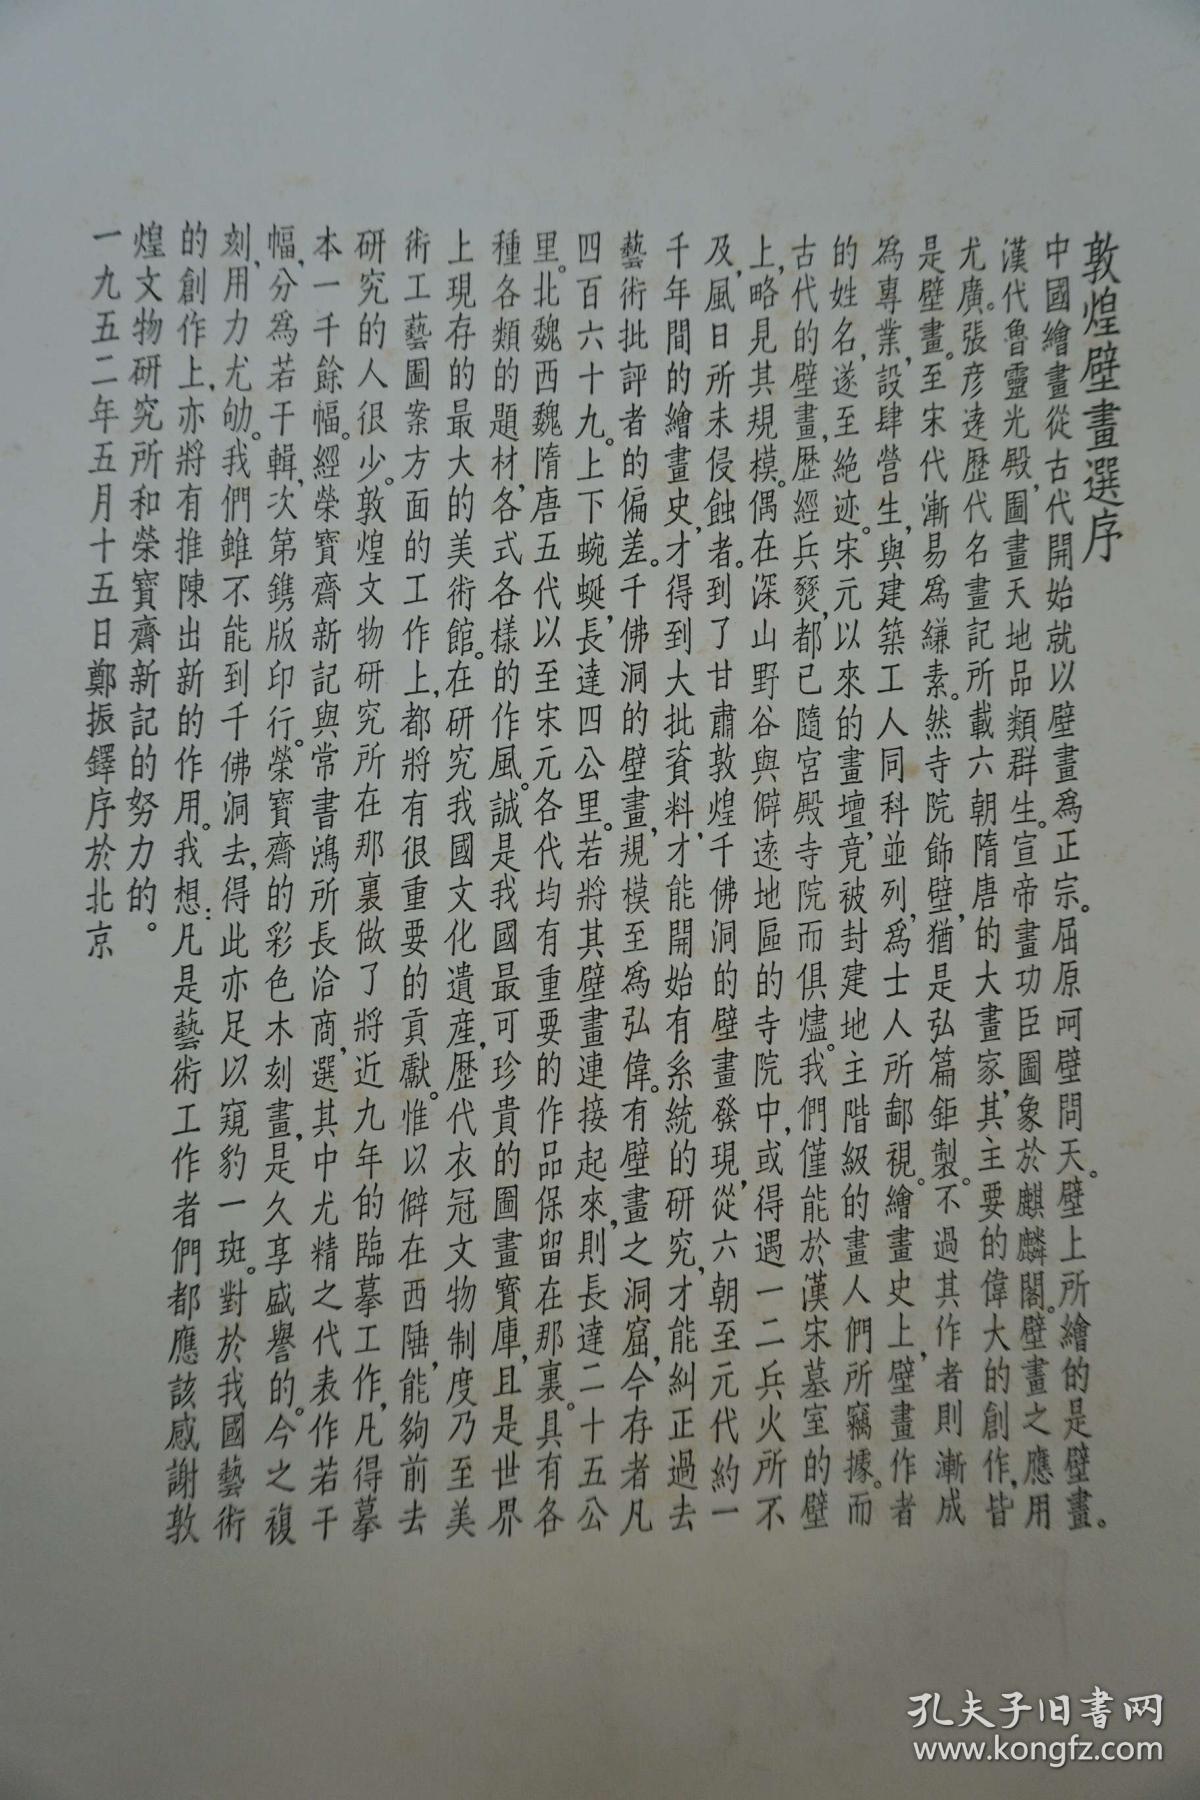 敦煌壁畫選序
中國繪畫從古代開始就以壁畫爲正宗。屈原呵壁問天。壁上所繪的是壁畫。
漢代魯靈光殿，圖畫天地品類群生。宣帝畫功臣圖象於麒麟閣。壁畫之應用
尤廣。張彦遠歷代名畫記所載六朝隋唐的大畫家，其主要的偉大的創作，皆
是壁畫。至宋代漸易爲縑素。然寺院飾壁，猶是弘篇鉅製。不過其作者則漸成
爲專業，設肆營生，與建築工人同科並列，爲士人所鄙視。繪畫史上，壁畫作者
的姓名，遂至絶迹。宋元以來的畫壇，竟被封建地主階級的畫人們所竊據。而
古代的壁畫，歷經兵燹，都已隨宮殿寺院而俱燼。我們僅能於漢宋墓室的壁
上，略見其規模。偶在深山野谷與僻遠地區的寺院中，或得遇一二兵火所不
及，風日所未侵蝕者。到了甘肅敦煌千佛洞的壁畫發現，從六朝至元代約一
千年間的繪畫史，才得到大批資料，才能開始有系統的研究，才能糾正過去
藝術批評者的偏差。千佛洞的壁畫，規模至爲弘偉。有壁畫之洞窟，今存者凡
四百六十九。上下蜿蜒，長達四公里。若將其壁畫連接起來，則長達二十五公
里。北魏西魏隋唐五代以至宋元各代均有重要的作品保留在那裏。具有各
種各類的題材，各式各樣的作風。誠是我國最可珍貴的圖畫寶庫，且是世界
上現存的最大的美術館。在研究我國文化遺産，歷代衣冠文物制度乃至美
術工藝圖案方面的工作上，都將有很重要的貢獻。惟以僻在西陲，能夠前去
研究的人很少。敦煌文物研究所在那裏做了將近九年的臨摹工作，凡得摹
本一千餘幅。經榮寶齋新記與常書鴻所長洽商，選其中尤精之代表作若干
幅，分爲若干輯，次第鐫版印行。榮寶齋的彩色木刻畫，是久享盛譽的。今之複
刻，用力尤劬。我們雖不能到千佛洞去，得此亦足以窺豹一斑。對於我國藝術
的創作上，亦將有推陳出新的作用。我想：凡是藝術工作者們都應該感謝敦
煌文物研究所和榮寶齋新記的努力的。
一九五二年五月十五日鄭振鐸序於北京
孔夫子旧书网
www.kongfz.com